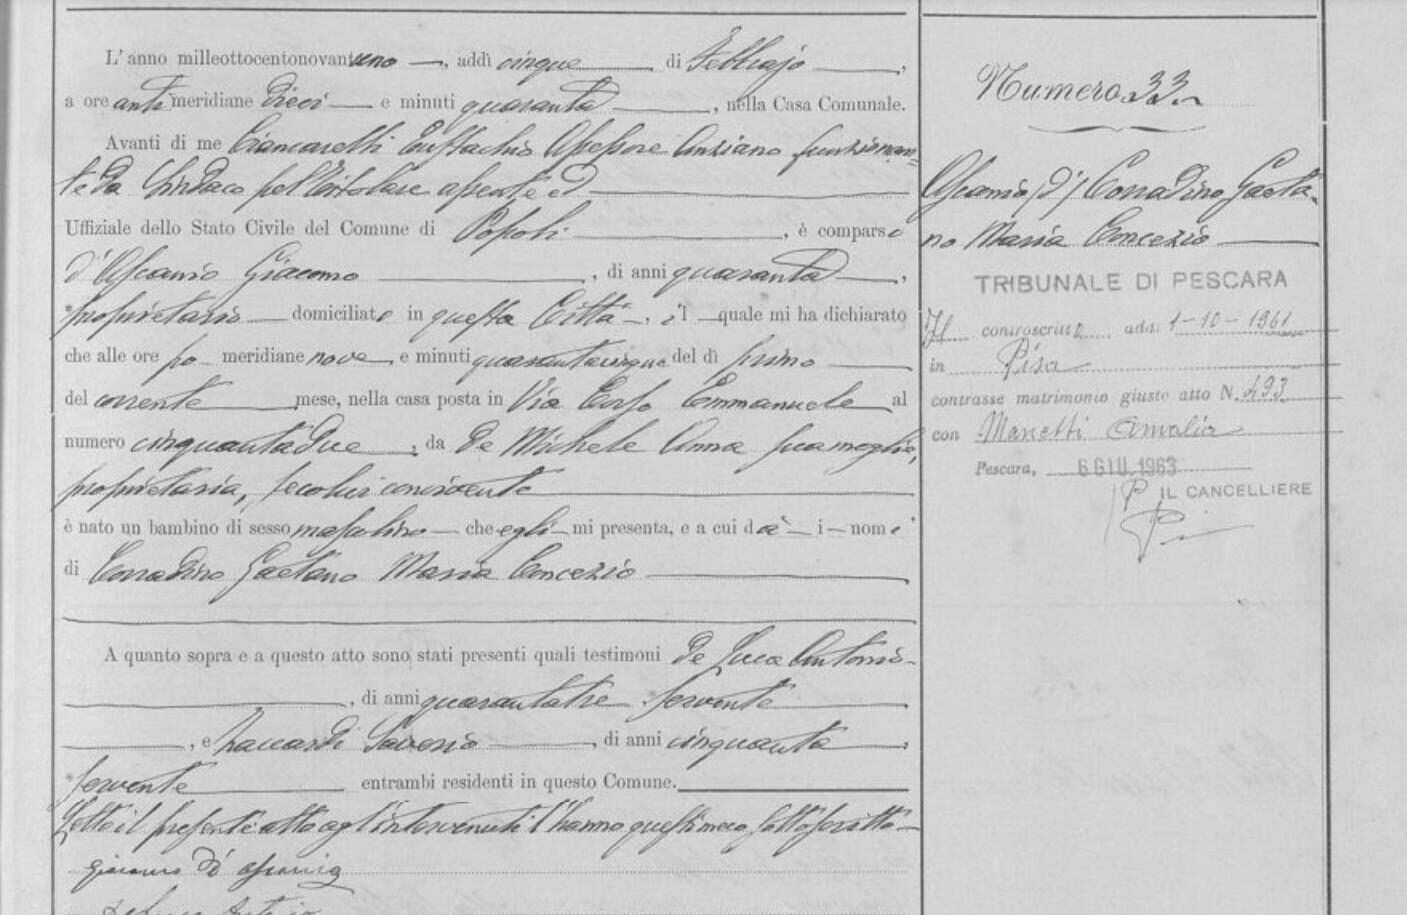 L'anno milleottocentonovantuno, addì cinque di Febbrajo,
a ore antimeridiane dieci e minuti quaranta, nella Casa Comunale.
Avanti di me Ciancarelli Eustachio Assessore Anziano funzionan=
te da Sindaco pel titolare assente ed
Uffiziale dello Stato Civile del Comune di Popoli, è comparso
d'Ascanio Giacomo, di anni quaranta,
proprietario domiciliato in questa Città, il quale mi ha dichiarato
che alle ore pomeridiane nove e minuti quarantacinque del dì primo
del corrente mese, nella casa posta in Via Corso Emmanuele al
numero cinquantadue, da De Michele Anna sua moglie,
proprietaria, seco lui convivente
è nato un bambino di sesso mascolino che egli mi presenta, e a cui dà i nomi
di Corradino Gaetano Maria Concezio
A quanto sopra e a questo atto sono stati presenti quali testimoni De Luca Antonio
, di anni quarantatre servente
, e Zaccardi Saverio, di anni cinquanta,
servente entrambi residenti in questo Comune.
Letto il presente atto agl'intervenuti l'hanno questi meco sottoscritto
Giacomo d'Ascanio
De Luca Antonio
Numero 33.
Ascanio (d') Corradino Gaeta-
no Maria Concezio
TRIBUNALE DI PESCARA
Il controscritto addì 1-10-1961
in Pisa
contrasse matrimonio giusto atto N. 493
con Manetti Amalia
Pescara, 6 GIU 1963
P. IL CANCELLIERE